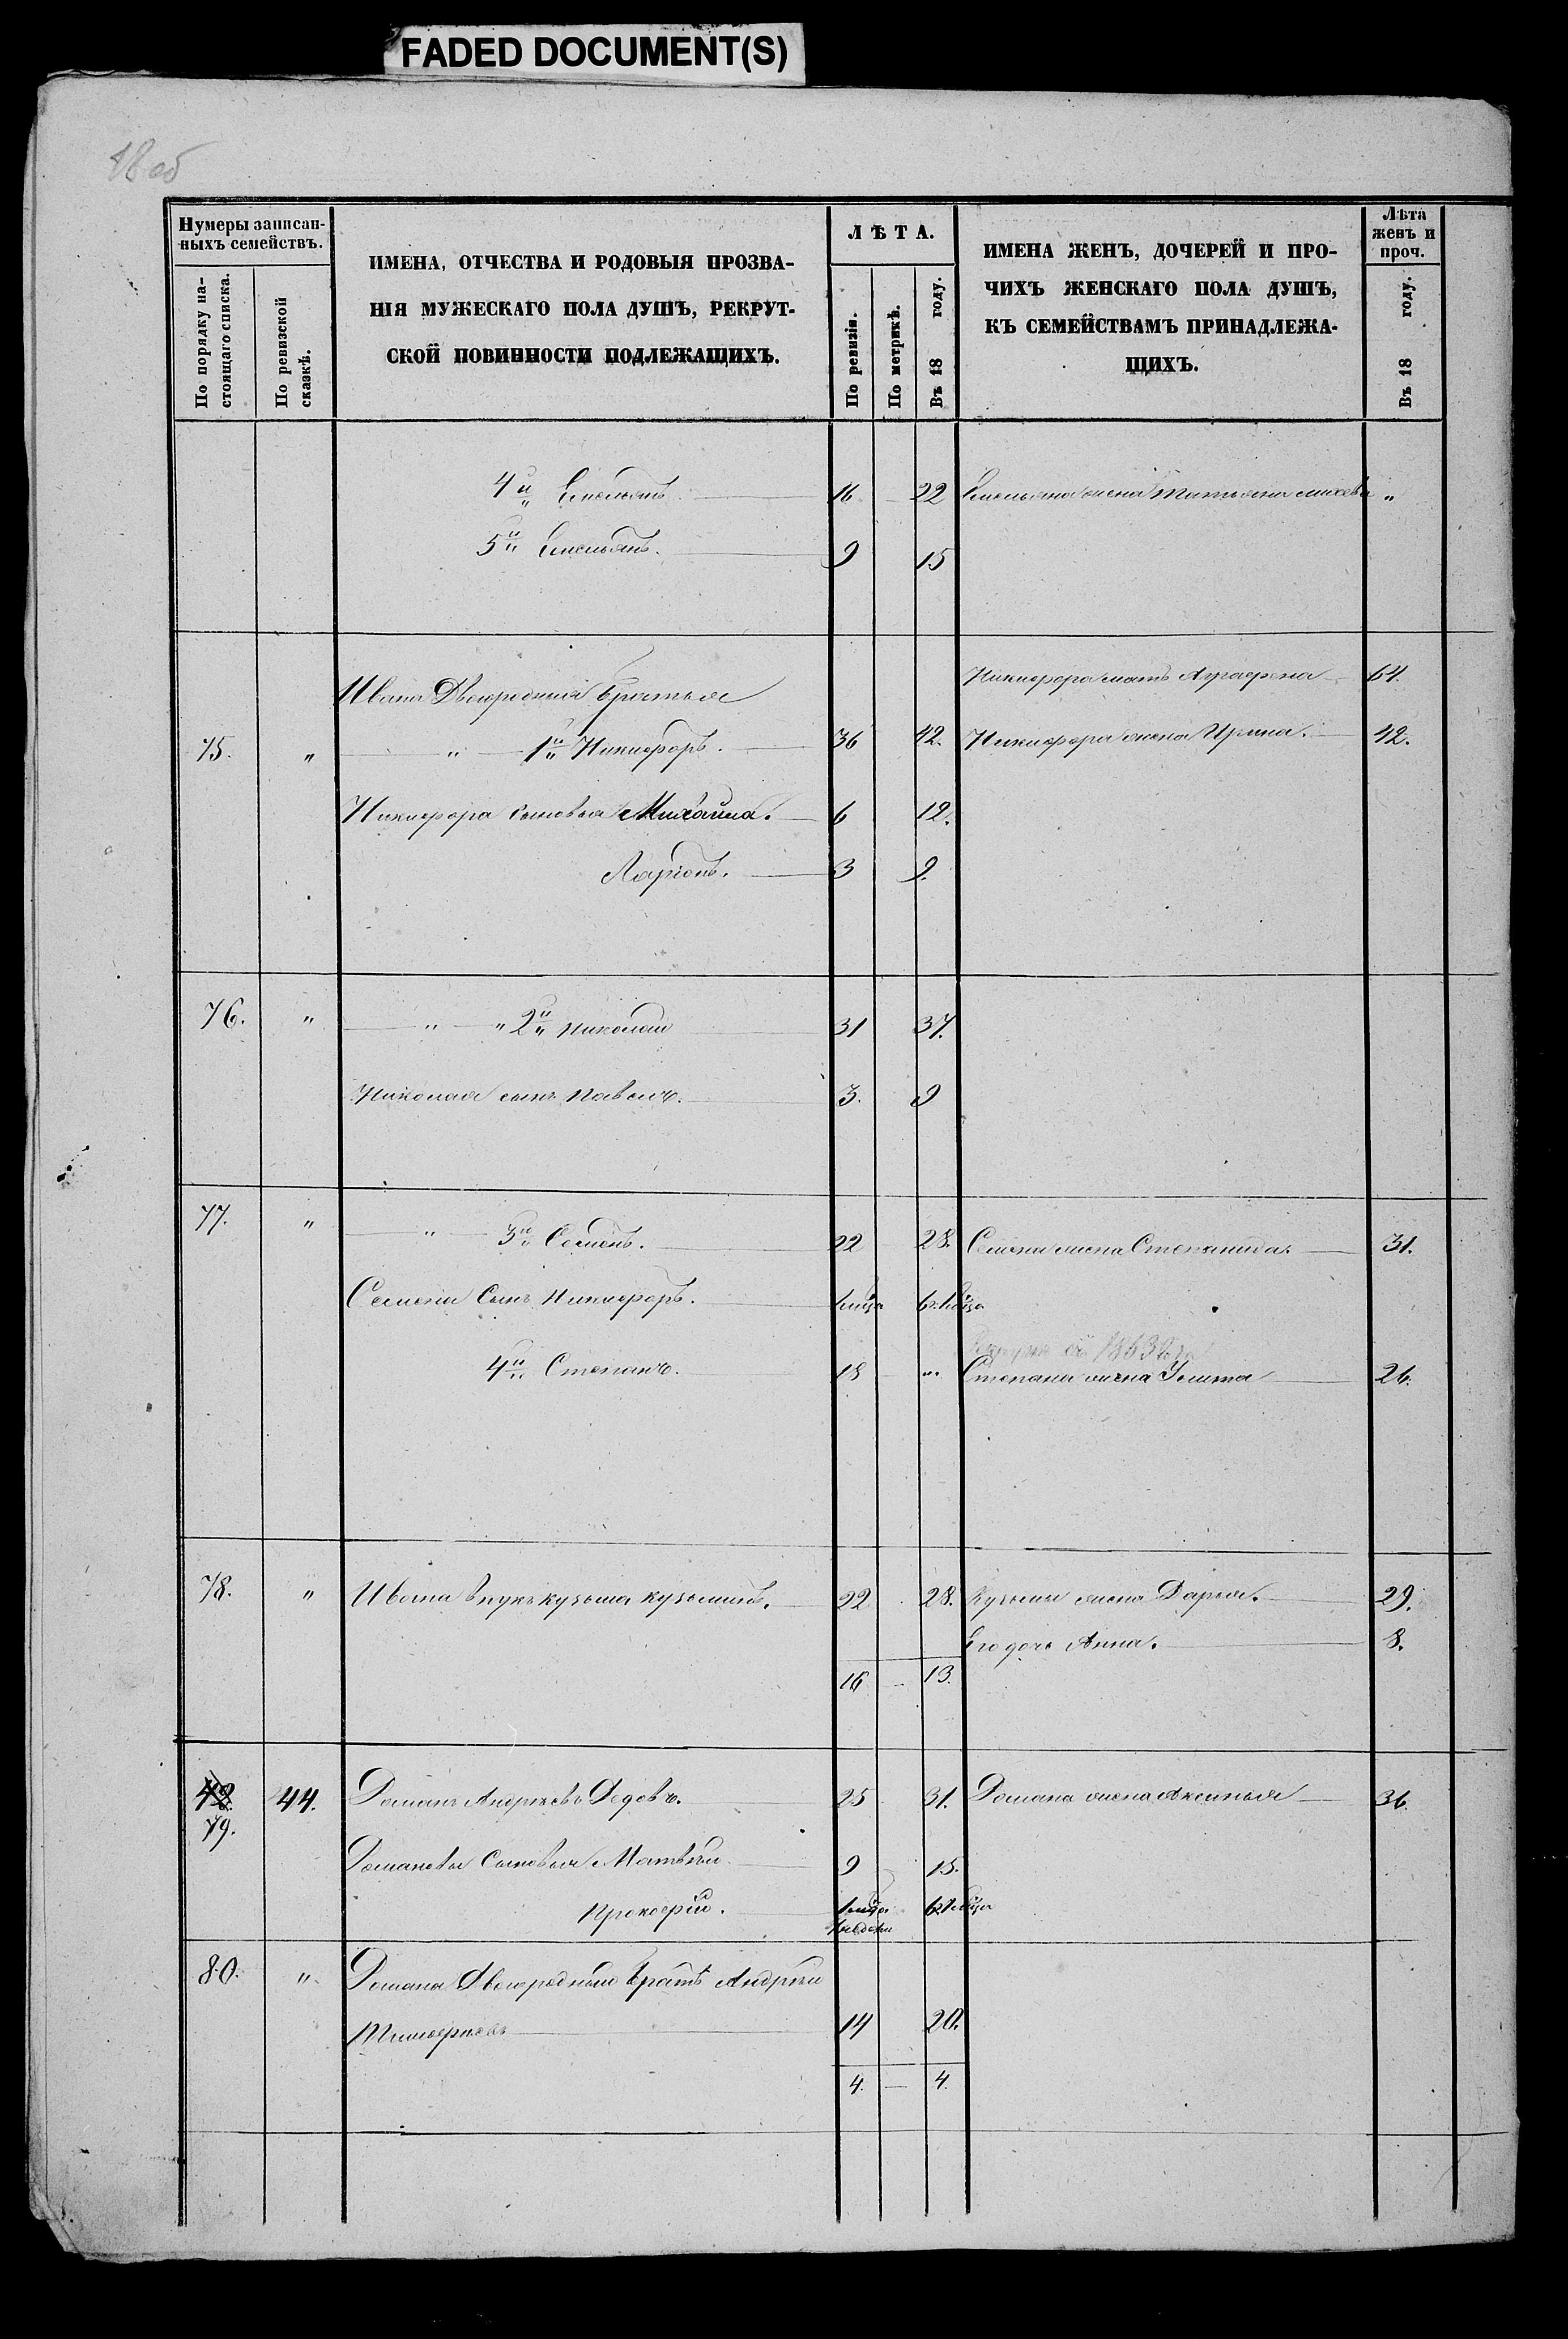 FADED DOCUMENT(S)
18 об
Нумеры записан-
ныхъ семействъ.
По порядку на-
стоящаго списка.
По ревизской
сказкѣ.
ИМЕНА, ОТЧЕСТВА И РОДОВЫЯ ПРОЗВА-
НІЯ МУЖЕСКАГО ПОЛА ДУШЪ, РЕКРУТ-
СКОЙ ПОВИННОСТИ ПОДЛЕЖАЩИХЪ.
ЛѢТА.
По ревизіи.
По метрикѣ.
Въ 18 году.
ИМЕНА ЖЕНЪ, ДОЧЕРЕЙ И ПРО-
ЧИХЪ ЖЕНСКАГО ПОЛА ДУШЪ,
КЪ СЕМЕЙСТВАМЪ ПРИНАДЛЕЖА-
ЩИХЪ.
Лѣта
женъ и
проч.
Въ 18 году.
4й Емельянъ 16 22 Емельяна жена Татьяна "
5й Емельянъ. 9 15
Никифора мать Аграфена 64.
Ивана Двоюродныи братья
75. " " 1й Никифоръ. 36 42. Никифора жена Ирина. 42.
Никифора сыновья Михаила. 6 12.
Ларіонъ. 3 9.
76. " " " 2й Николаи 31 37.
Николая сынъ Павелъ. 3. 9
77. " " 3й Семенъ. 22 28. Семена жена Степанида. 31.
Семена Сынъ Никифоръ.
1853
4й Степанъ. 18 " Степана жена Улита 26.
78. " Ивана внукъ кузьма кузьминъ. 22 28. Кузьмы жена Дарья. 29.
Его дочь Анна. 8.
16 — 13.
79. 44. Романъ Андреевъ Дедовъ. 25 31. Романа жена Аксинья 36.
Романовы Сыновья Матвѣи 9 15.
Прокофіи.
80. " Романа Двоюродныи братъ Андрѣи
Тимофѣевъ 14 20.
4. — 4.